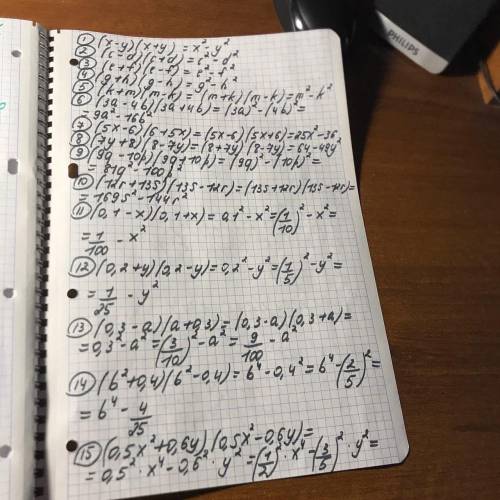 PHILIPS
① (x-y)(x+y) = x²-y²
② (c-d)(c+d) = c²-d²
③
④ (g+h)(g-h) = g²-h²
⑤ (k+m)(m-k) = (m+k)(m-k) = m²-k²
⑥ (3a-4b)(3a+4b) = (3a)²-(4b)² =
= 9a²-16b²
⑦ (5x-6)(6+5x) = (5x-6)(5x+6) = 25x²-36
⑧ (7y+8)(8-7y) = (8+7y)(8-7y) = 64-49y²
⑨ (9q-10h)(9q+10h) = (9q)²-(10h)² =
= 81q²-100h²
⑩ (12r+13s)(13s-12r) = (13s+12r)(13s-12r) =
= 169s²-144r²
⑪ (0,1-x)(0,1+x) = 0,1²-x² = (1/10)²-x² =
= 1/100 - x²
⑫ (0,2+y)(0,2-y) = 0,2²-y² = (1/5)²-y² =
= 1/25 - y²
⑬ (0,3-a)(a+0,3) = (0,3-a)(0,3+a) =
= 0,3²-a² = (3/10)²-a² = 9/100 - a²
⑭ (b²+0,4)(b²-0,4) = b⁴-0,4² = b⁴-(2/5)² =
= b⁴ - 4/25
⑮ (0,5x²+0,6y)(0,5x²-0,6y) =
= 0,5²·x⁴-0,6²·y² = (1/2)²·x⁴-(3/5)²·y² =